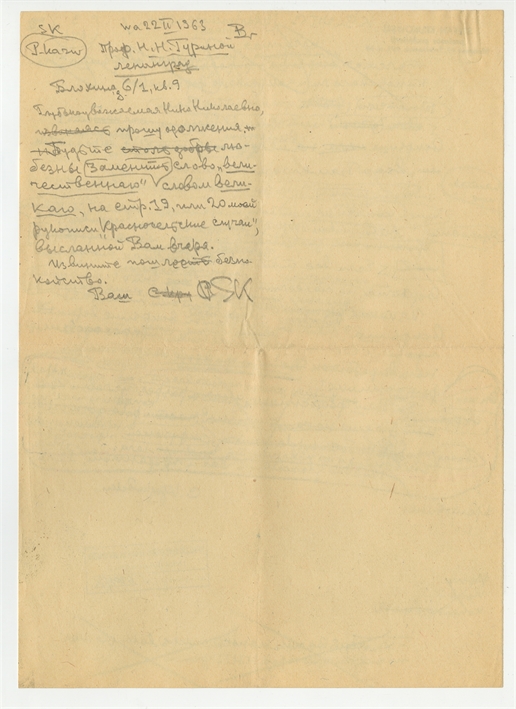 SK wa 22 II 1963 B.
P. kazw Проф. Н. Н. Гуриной
Ленинград
Блохина, 6/1, кв. 9
Глубокоуважаемая Нина Николаевна,
извиняясь прошу одолжения,
Будьте столь добры лю-
безны заменить слово „вели-
чественнаю” словом вели-
каго, на стр. 19, или 20 моей
рукописи „Красносельские случаи”,
высланной Вам вчера.
Извините беспо
койство.
Ваш SK